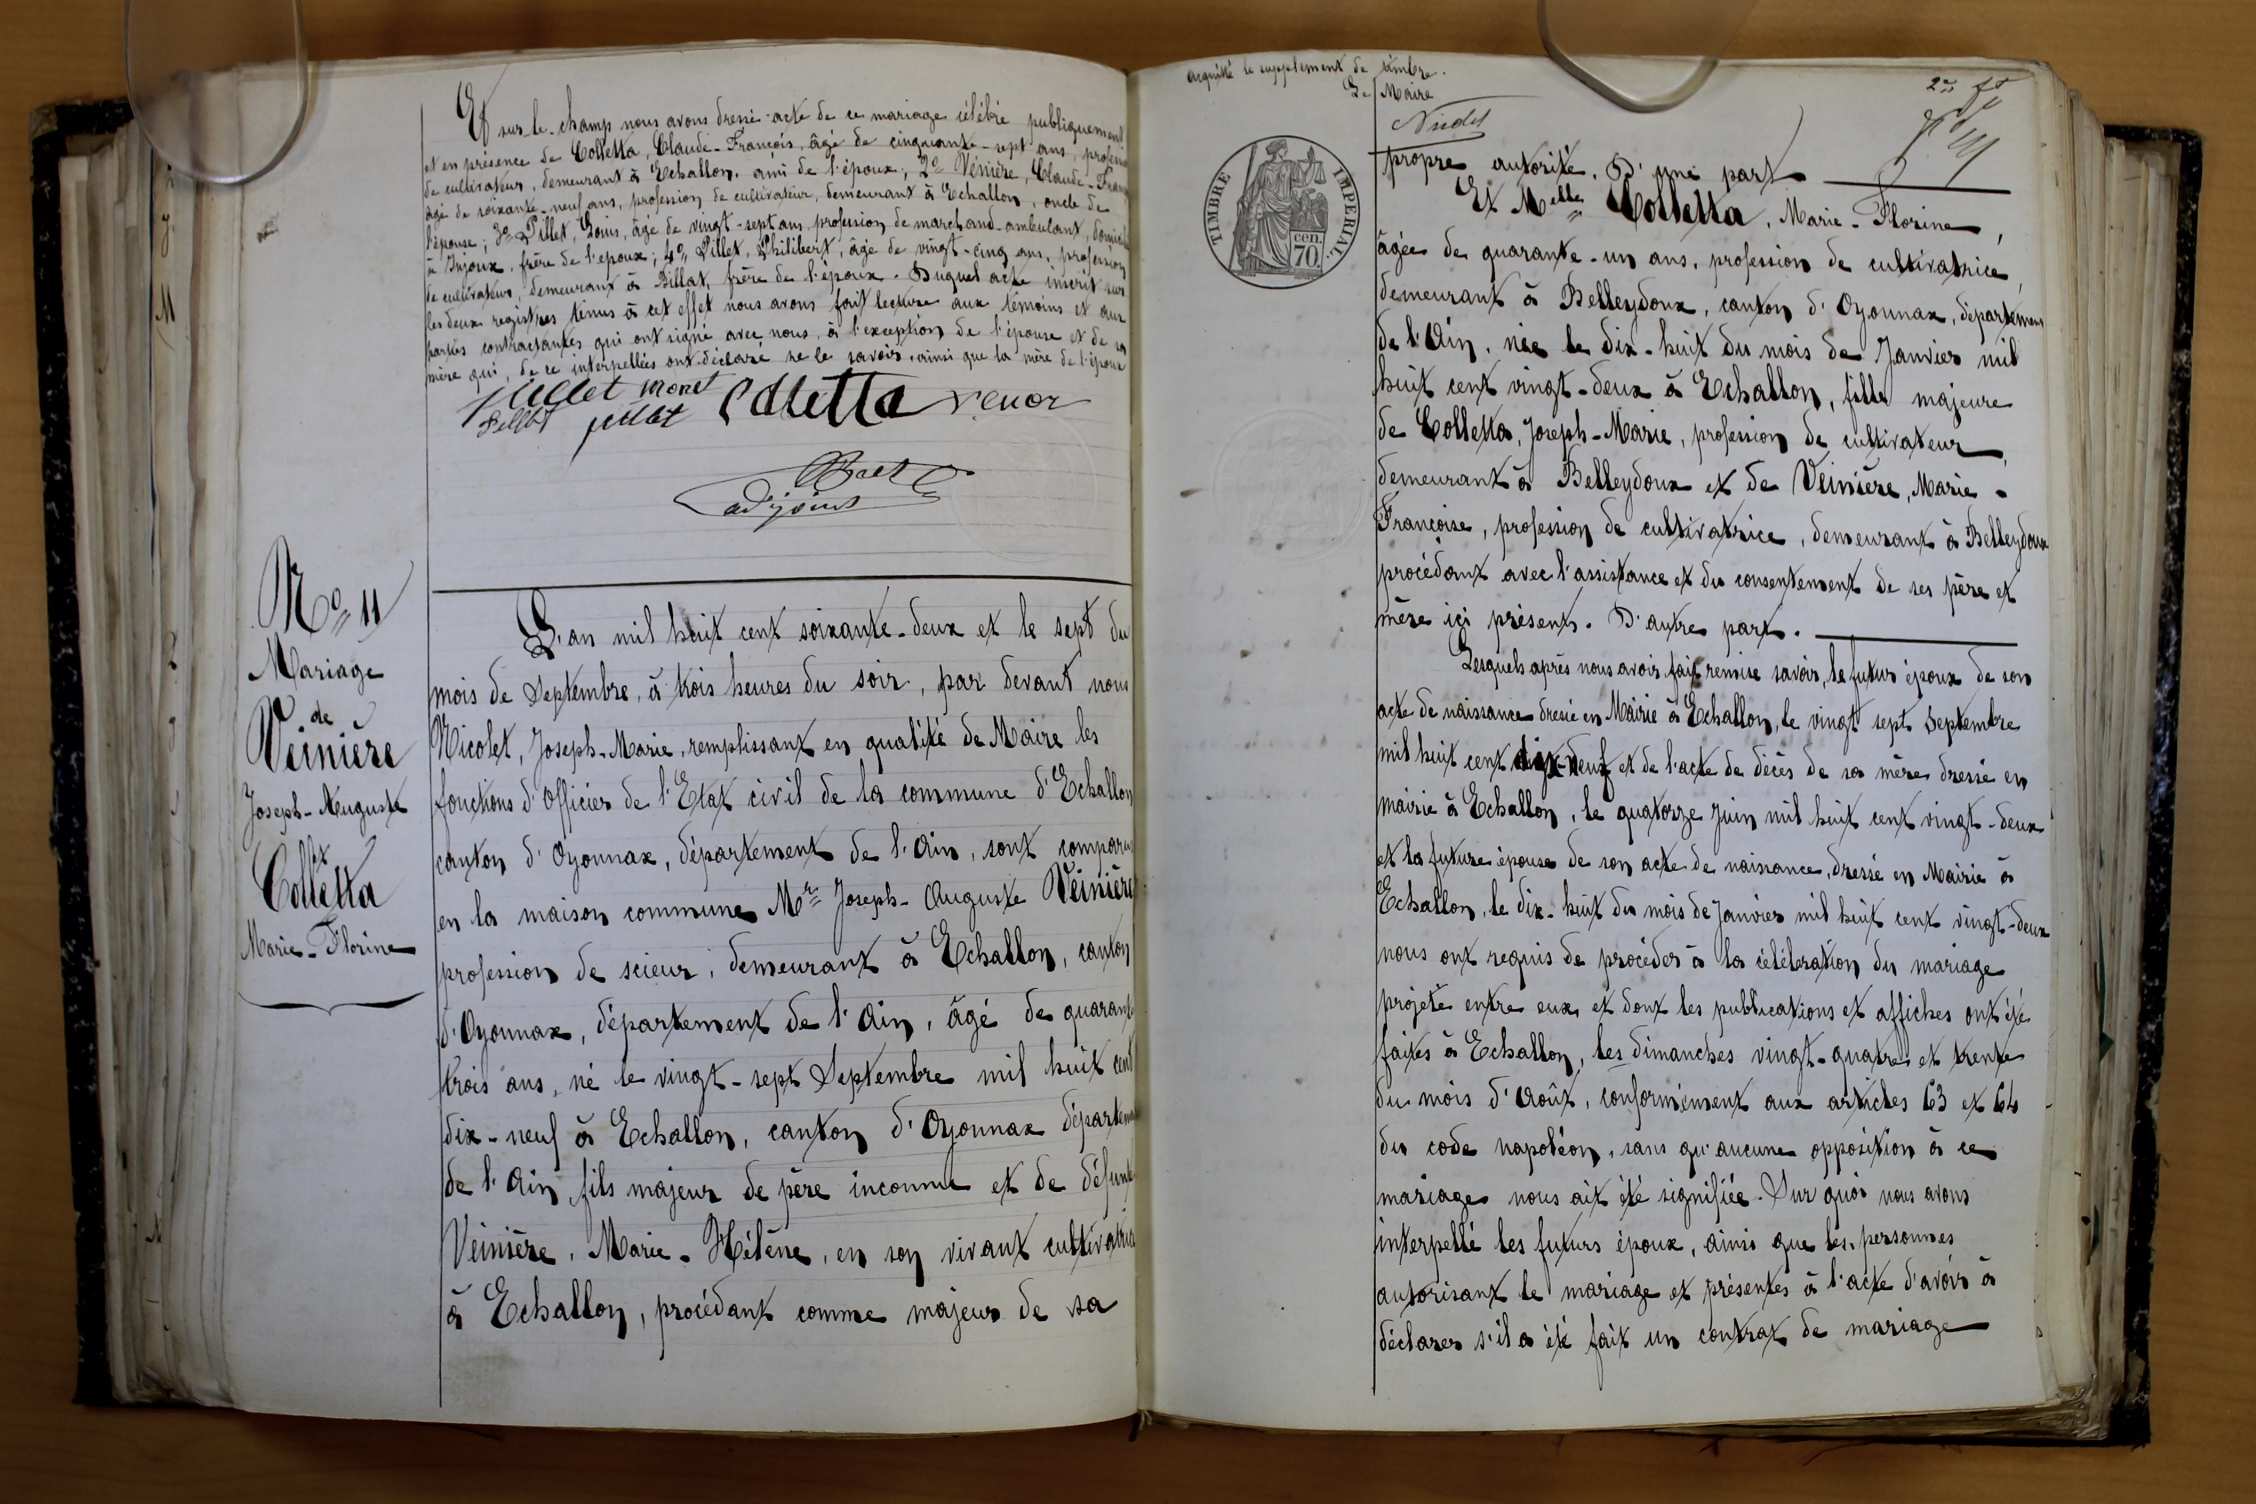 Et sur-le-champ nous avons dressé acte de ce mariage célébré publiquement
et en présence de Colletta, Claude-François, âgé de cinquante-sept ans, profession
de cultivateur, demeurant à Echallon, ami de l'époux; 2º Vénière, Claude-Franç
âgé de soixante-neuf ans, profession de cultivateur, demeurant à Echallon, oncle de
l'épouse; 3º Pillet, Louis, âgé de vingt-sept ans, profession de marchand-ambulant, domicilié
à Injoux, frère de l'époux; 4º Pillet, Philibert, âgé de vingt-cinq ans, profession
de cultivateur, demeurant à Billat, frère de l'époux. Duquel acte inscrit sur
les deux registres tenus à cet effet nous avons fait lecture aux témoins et aux
parties contractantes qui ont signé avec nous, à l'exception de l'épouse et de sa
mère qui, de ce interpellées ont déclaré ne le savoir, ainsi que la mère de l'époux
pillet monet Colletta venor
Pellet pillet
adjoint
Nº 11
Mariage
de
Veinière
Joseph-Auguste
et
Colletta
Marie-Florine
L'an mil huit cent soixante-deux et le sept du
mois de Septembre, à trois heures du soir, par devant nous
Nicolet, Joseph-Marie, remplissant en qualité de Maire les
fonctions d'Officier de l'Etat civil de la commune d'Echallon
canton d'Oyonnax, département de l'Ain, sont comparu
en la maison commune Mr Joseph-Auguste Veinière
profession de scieur, demeurant à Echallon, canton
d'Oyonnax, département de l'Ain, âgé de quarante
trois ans, né le vingt-sept Septembre mil huit cent
dix-neuf à Echallon, canton d'Oyonnax département
de l'Ain fils majeur de père inconnu et de défunte
Veinière, Marie-Hélène, en son vivant cultivatrice
à Echallon, procédant comme majeur de sa
acquitté le supplément de timbre.
Le Maire
Nicolet
2e ft
TIMBRE IMPERIAL.
cen.
70.
propre autorité. D'une part
Et Melle Colletta, Marie-Florine,
âgée de quarante-un ans, profession de cultivatrice,
demeurant à Belleydoux, canton d'Oyonnax, département
de l'Ain, née le dix-huit du mois de Janvier mil
huit cent vingt-deux à Echallon, fille majeure
de Colletta, Joseph-Marie, profession de cultivateur,
demeurant à Belleydoux et de Veinière, Marie-
Françoise, profession de cultivatrice, demeurant à Belleydoux
procédant avec l'assistance et du consentement de ses père et
mère ici présents. D'autre part.
Lesquels après nous avoir fait remise savoir, le futur époux de son
acte de naissance dressé en Mairie à Echallon, le vingt sept Septembre
mil huit cent dix-neuf et de l'acte de décès de sa mère dressé en
mairie à Echallon, le quatorze Juin mil huit cent vingt-deux
et la future épouse de son acte de naissance, dressé en Mairie à
Echallon, le dix-huit du mois de Janvier mil huit cent vingt-deux
nous ont requis de procéder à la célébration du mariage
projeté entre eux, et dont les publications et affiches ont été
faites à Echallon, les dimanches vingt-quatre et trente
du mois d'Août, conformément aux articles 63 et 64
du code napoléon, sans qu'aucune opposition à ce
mariage nous ait été signifiée. Sur quoi nous avons
interpellé les futurs époux, ainsi que les personnes
autorisant le mariage et présentes à l'acte d'avoir à
déclarer s'il a été fait un contrat de mariage